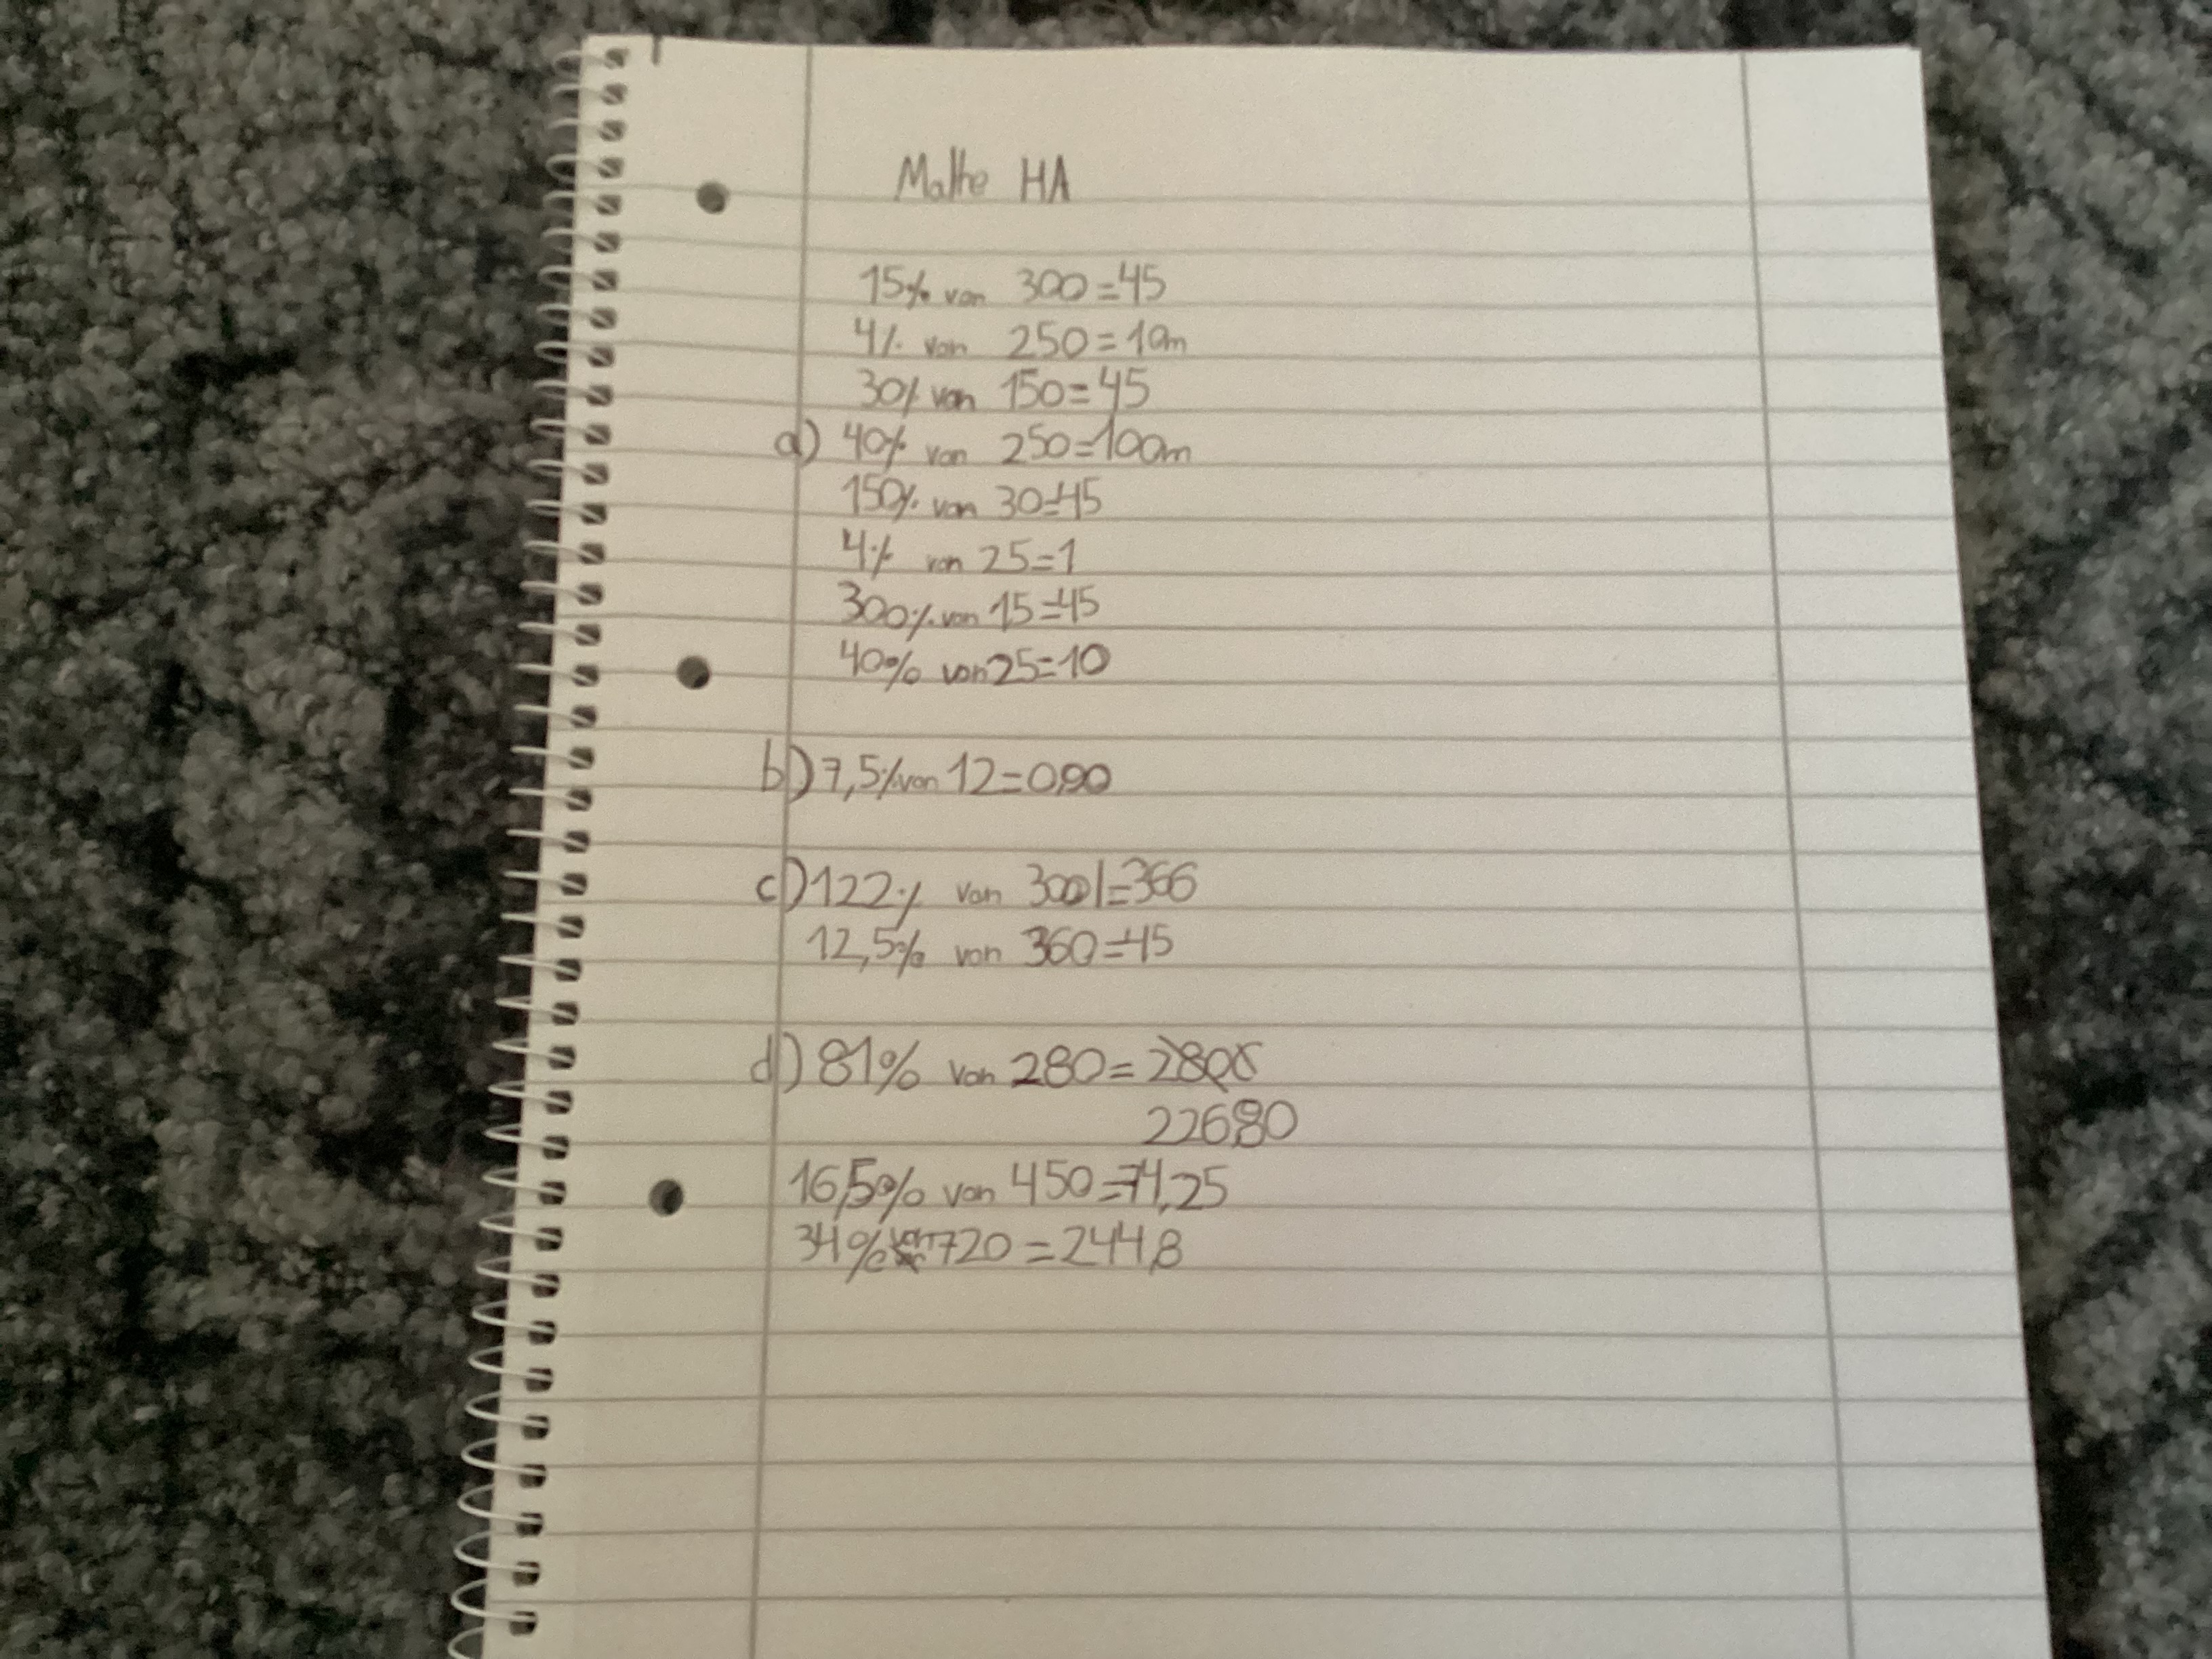 Mathe HA
15% von 300=45
4% von 250=10m
30% von 150=45
a) 40% von 250=100m
150% von 30=45
4% von 25=1
300% von 15=45
40% von 25=10
b) 7,5% von 12=0,90
c) 122% von 300l=366
12,5% von 360=45
d) 81% von 280=
226,80
16,5% von 450=74,25
34% von 720=244,8